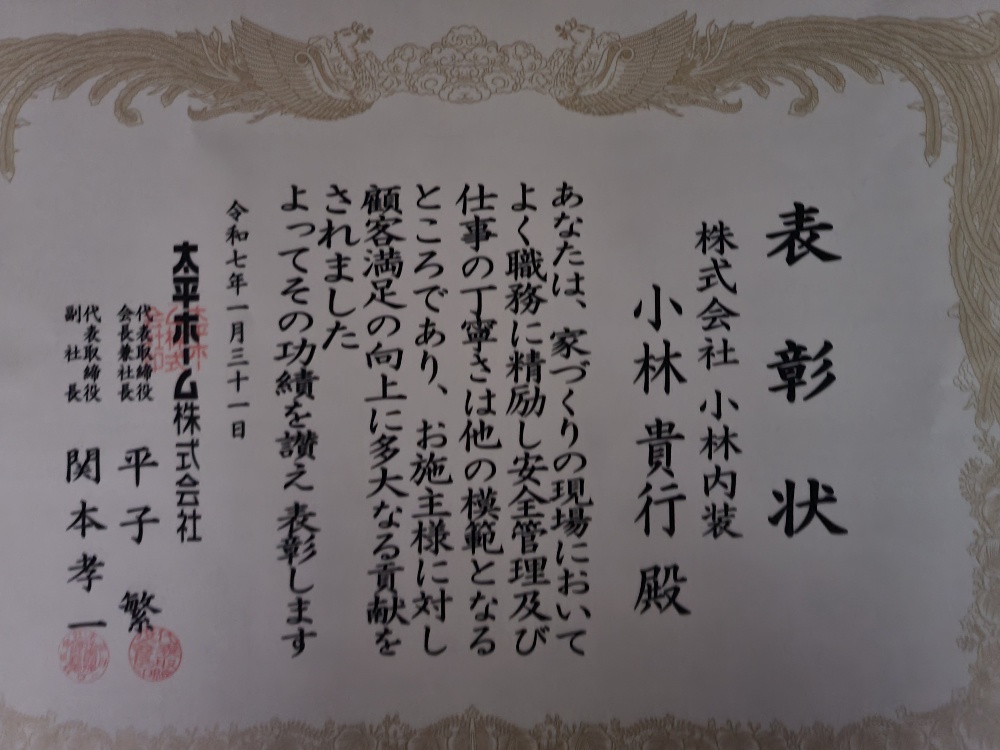 表彰状
株式会社 小林内装
小林貴行殿
あなたは、家づくりの現場において
よく職務に精励し安全管理及び
仕事の丁寧さは他の模範となる
ところであり、お施主様に対し
顧客満足の向上に多大なる貢献を
されました
よってその功績を讃え表彰します
令和七年一月三十一日
太平ホーム株式会社
代表取締役
会長兼社長
平子 繁
代表取締役
副社長
関本孝一